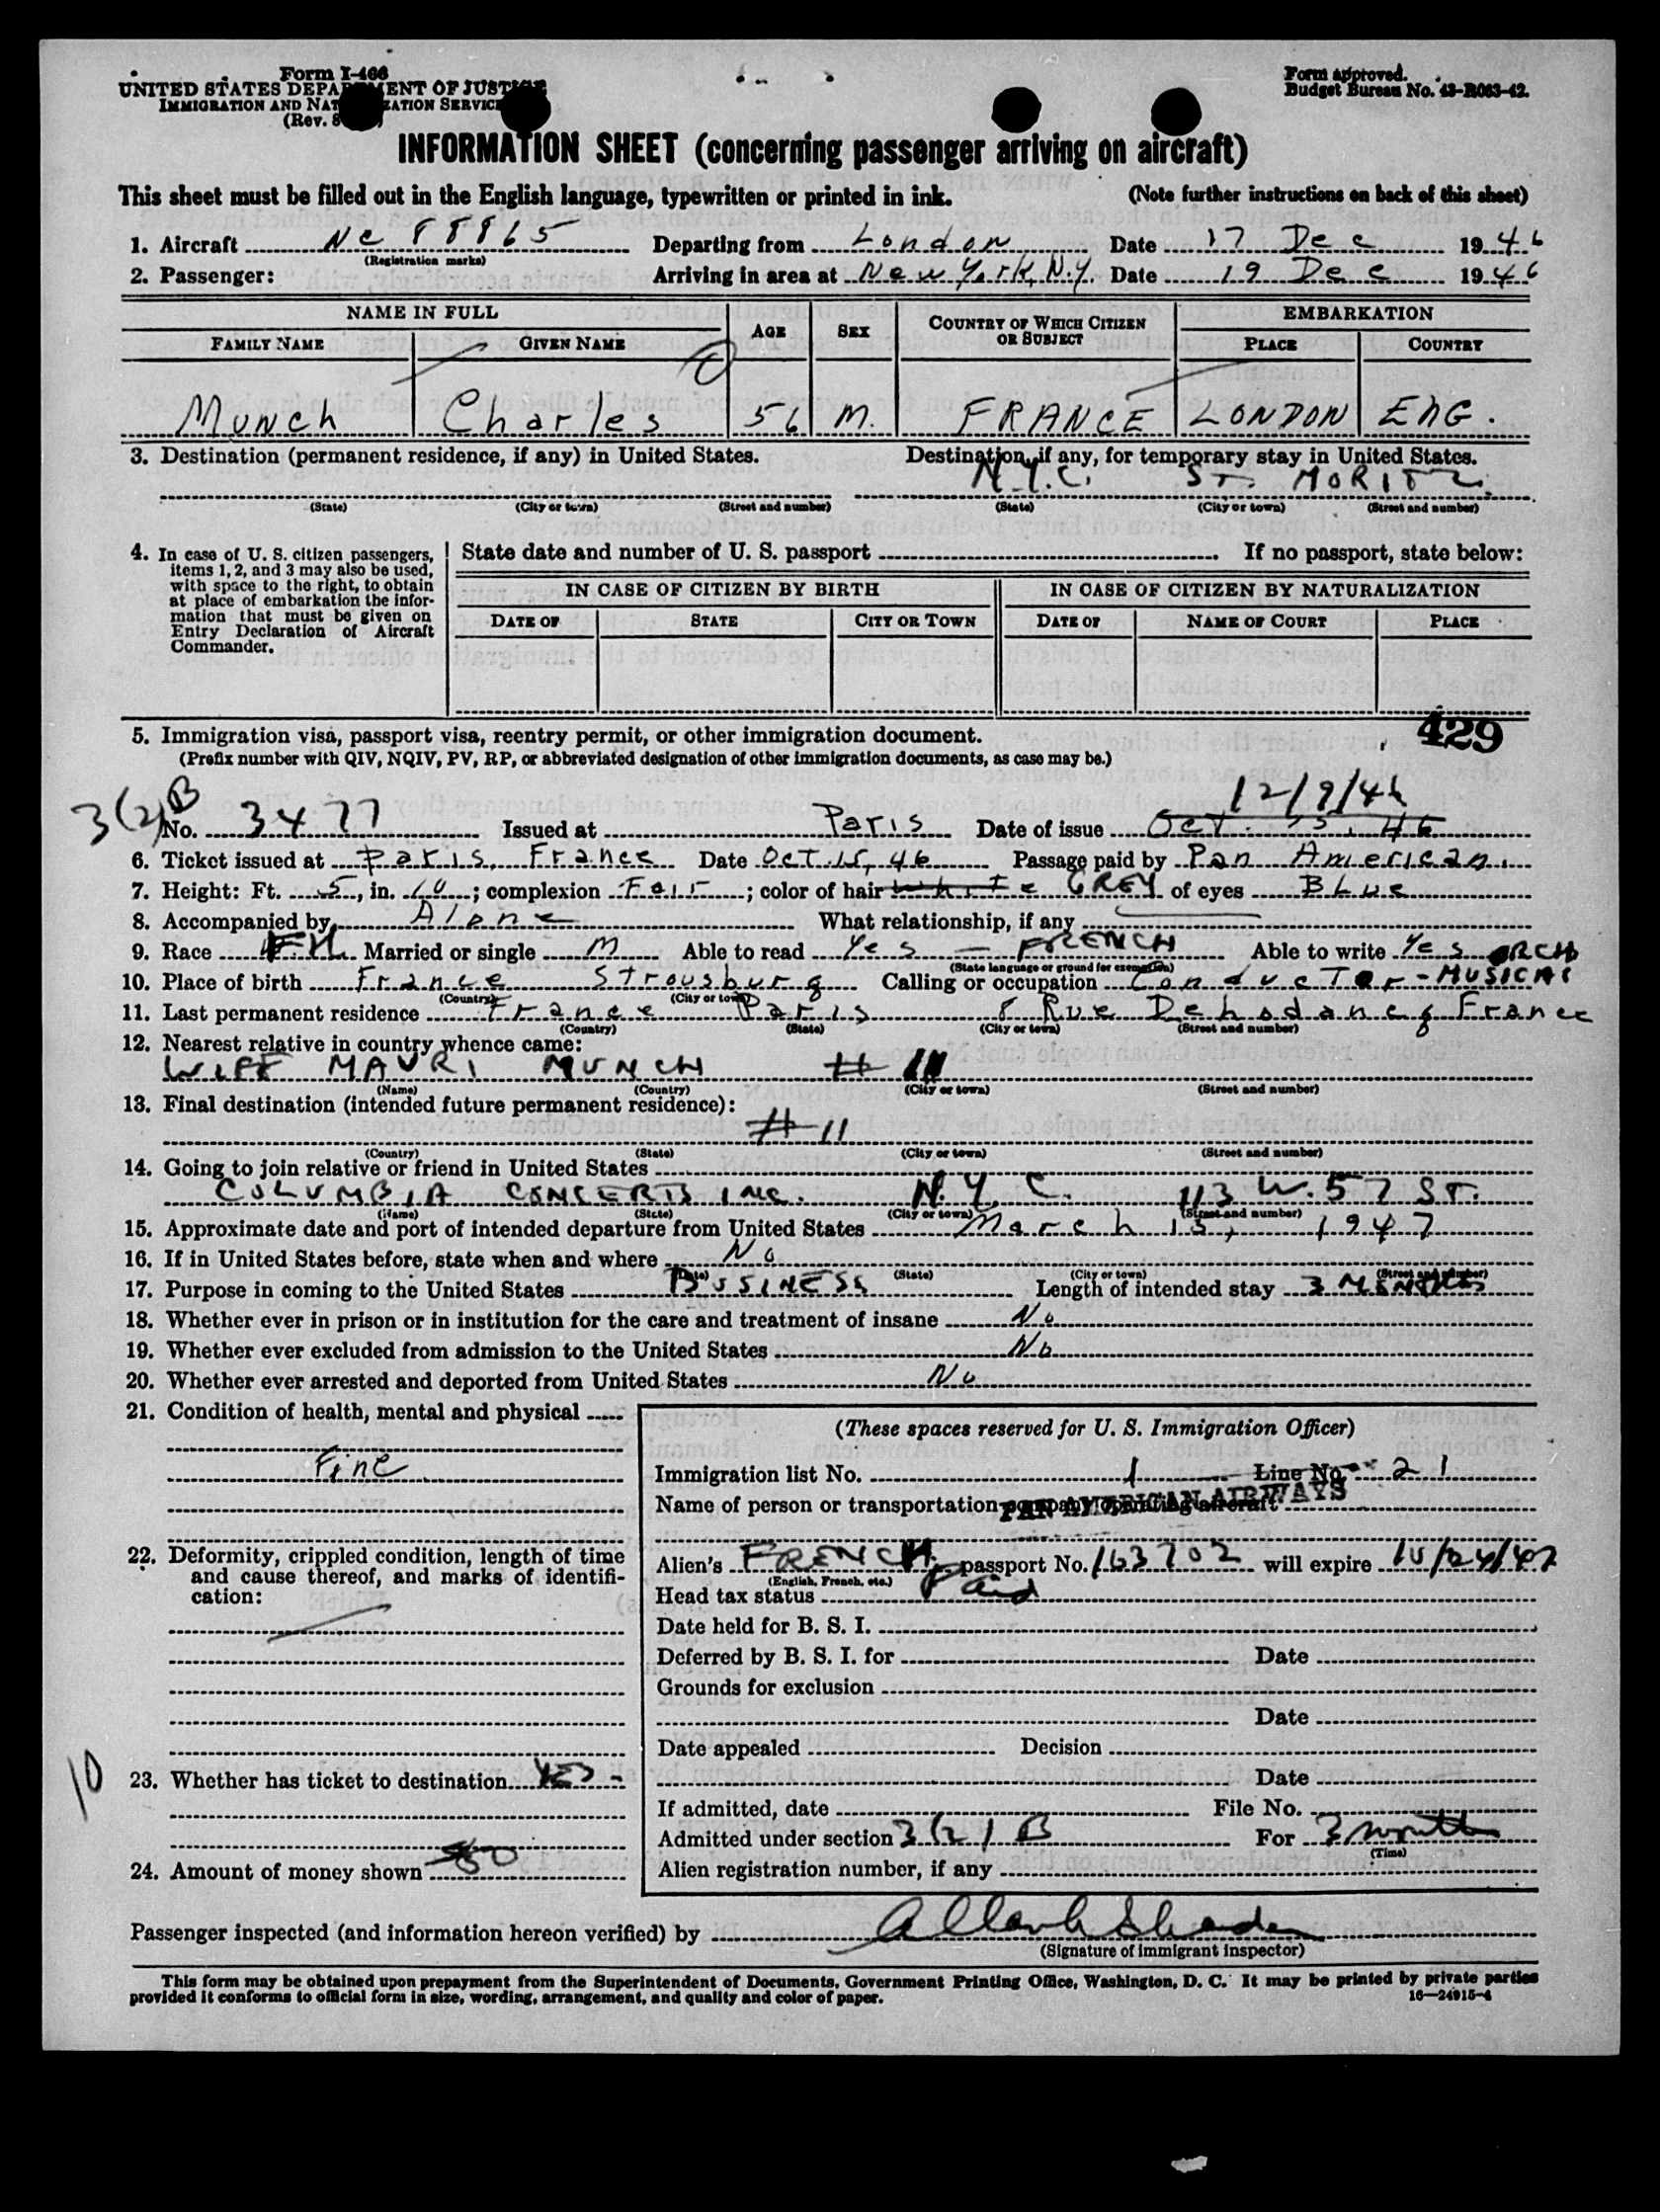 Form I-466
UNITED STATES DEPARTMENT OF JUSTICE
IMMIGRATION AND NATURALIZATION SERVICE
(Rev. 8
Form approved.
Budget Bureau No. 43-R063-42.
INFORMATION SHEET (concerning passenger arriving on aircraft)
This sheet must be filled out in the English language, typewritten or printed in ink. (Note further instructions on back of this sheet)
1. Aircraft NC 88865 Departing from London Date 17 Dec 1946
(Registration marks)
2. Passenger: Arriving in area at New York, N.Y. Date 19 Dec 1946
NAME IN FULL AGE SEX COUNTRY OF WHICH CITIZEN OR SUBJECT EMBARKATION
FAMILY NAME GIVEN NAME PLACE COUNTRY
Munch Charles 56 M. FRANCE LONDON ENG.
3. Destination (permanent residence, if any) in United States. Destination, if any, for temporary stay in United States.
N.Y.C. ST. MORITZ
(State) (City or town) (Street and number) (State) (City or town) (Street and number)
4. In case of U. S. citizen passengers, items 1, 2, and 3 may also be used, with space to the right, to obtain at place of embarkation the information that must be given on Entry Declaration of Aircraft Commander.
State date and number of U. S. passport If no passport, state below:
IN CASE OF CITIZEN BY BIRTH IN CASE OF CITIZEN BY NATURALIZATION
DATE OF STATE CITY OR TOWN DATE OF NAME OF COURT PLACE
429
5. Immigration visa, passport visa, reentry permit, or other immigration document.
(Prefix number with QIV, NQIV, PV, RP, or abbreviated designation of other immigration documents, as case may be.)
12/9/46
3(2) B No. 3477 Issued at Paris Date of issue Oct. 15, 46
6. Ticket issued at Paris, France Date Oct. 15, 46 Passage paid by Pan American
7. Height: Ft. 5, in. 10; complexion Fair; color of hair White GREY of eyes Blue
8. Accompanied by Alone What relationship, if any
9. Race FR. Married or single M Able to read Yes - FRENCH Able to write Yes ORCH
(State language or ground for exemption)
10. Place of birth France Strousburg Calling or occupation Conductor - MUSICAL
(Country) (City or town)
11. Last permanent residence France Paris 8 Rue Dehodancq France
(Country) (State) (City or town) (Street and number)
12. Nearest relative in country whence came:
WIFE MAURI MUNCH # 11
(Name) (Country) (City or town) (Street and number)
13. Final destination (intended future permanent residence):
# 11
(Country) (State) (City or town) (Street and number)
14. Going to join relative or friend in United States
COLUMBIA CONCERTS INC. N.Y.C. 113 W. 57 ST.
(Name) (State) (City or town) (Street and number)
15. Approximate date and port of intended departure from United States March 15, 1947
16. If in United States before, state when and where No
(State) (City or town) (Street and number)
17. Purpose in coming to the United States BUSINESS Length of intended stay 3 MONTHS
18. Whether ever in prison or in institution for the care and treatment of insane No
19. Whether ever excluded from admission to the United States No
20. Whether ever arrested and deported from United States No
21. Condition of health, mental and physical
Fine
22. Deformity, crippled condition, length of time and cause thereof, and marks of identification:
10
23. Whether has ticket to destination YES -
24. Amount of money shown 50
(These spaces reserved for U. S. Immigration Officer)
Immigration list No. 1 Line No. 21
Name of person or transportation company operating aircraft
PAN AMERICAN AIRWAYS
Alien's FRENCH passport No. 163702 will expire 10/24/47
(English, French, etc.)
Head tax status Paid
Date held for B. S. I.
Deferred by B. S. I. for Date
Grounds for exclusion
Date
Date appealed Decision
Date
If admitted, date File No.
Admitted under section 3(2) B For 3 months
(Time)
Alien registration number, if any
Passenger inspected (and information hereon verified) by
(Signature of immigrant inspector)
This form may be obtained upon prepayment from the Superintendent of Documents, Government Printing Office, Washington, D. C. It may be printed by private parties
provided it conforms to official form in size, wording, arrangement, and quality and color of paper. 16—24915-4